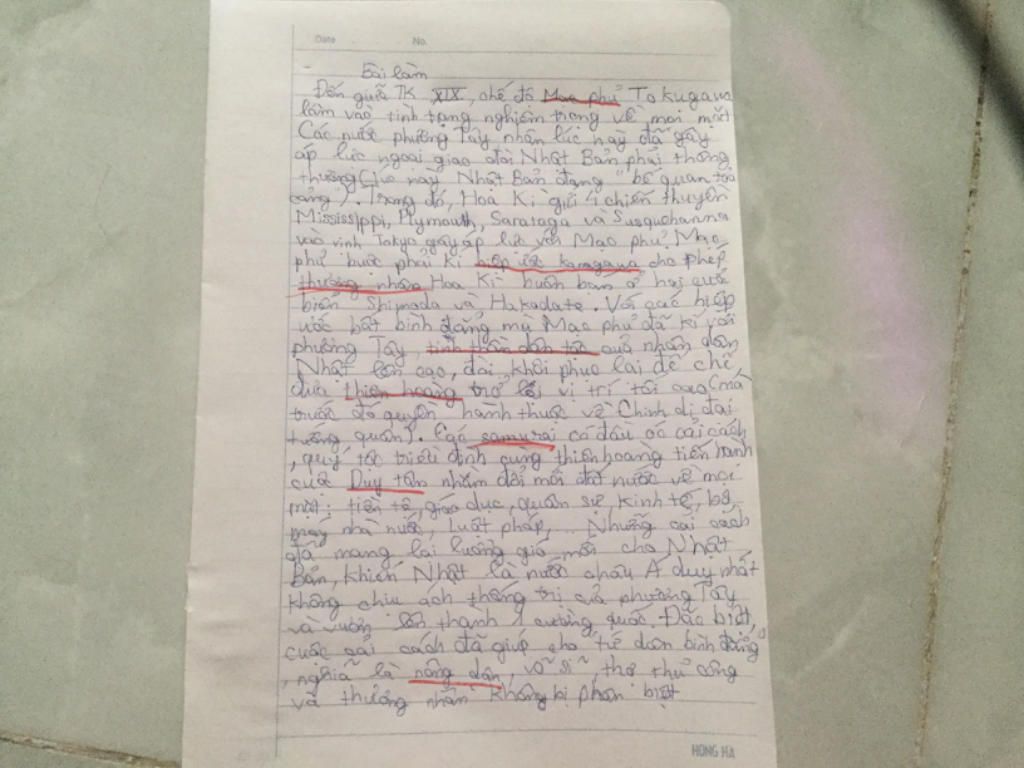 Date No.
Bài làm
Đến giữa TK XIX, chế độ Mạc phủ Tokugawa
lâm vào tình trạng nghiêm trọng về mọi mặt
Các nước phương Tây nhân lúc này đã gây
áp lực ngoại giao đòi Nhật Bản phải thông
thương (lúc này Nhật Bản đang "bế quan tỏa
cảng"). Trong đó, Hoa Kì gửi 4 chiến thuyền
Mississippi, Plymouth, Sarataga và Susquehanna
vào vịnh Tokyo gây áp lực với Mạc phủ. Mạc
phủ buộc phải kí hiệp ước kanagawa cho phép
thương nhân Hoa Kì buôn bán ở hai cửa
biển Shimoda và Hakodate. Với các hiệp
ước bất bình đẳng mà Mạc phủ đã kí với
phương Tây, tinh thần dân tộc của nhân dân
Nhật lên cao, đòi khôi phục lại đế chế
đưa thiên hoàng trở lại vị trí tối cao (mà
trước đó quyền hành thuộc về Chinh di đại
tướng quân). Các samurai có đầu óc cải cách
, quý tộc triều đình cùng thiên hoàng tiến hành
cuộc Duy tân nhằm đổi mới đất nước về mọi
mặt: tiền tệ, giáo dục, quân sự, kinh tế, bộ
máy nhà nước, luật pháp,... Những cải cách
đã mang lại luồng gió mới cho Nhật
Bản, khiến Nhật là nước châu Á duy nhất
không chịu ách thống trị của phương Tây
và vươn lên thành 1 cường quốc. Đặc biệt,
cuộc cải cách đã giúp cho tứ dân bình đẳng
, nghĩa là nông dân, võ sĩ, thợ thủ công
và thương nhân không bị phân biệt
HONG HA